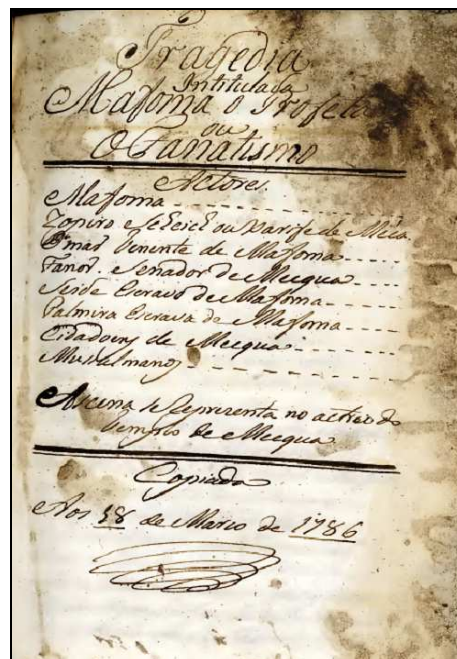 Tragedia
Intitulada
Mafoma o Profeta
ou
O Fanatismo
Actores.
Mafoma
Zopiro e Scheich ou Xarife de Meca.
Omar Tenente de Mafoma
Fanor. Senador de Mecqua
Seide Escravo de Mafoma
Palmira Escrava de Mafoma
Cidadoens de Mecqua
Musulmanos
A scena se Reprezenta no actreo do
Templo de Mecqua
Copiada
Aos 18 de Marco de 1786